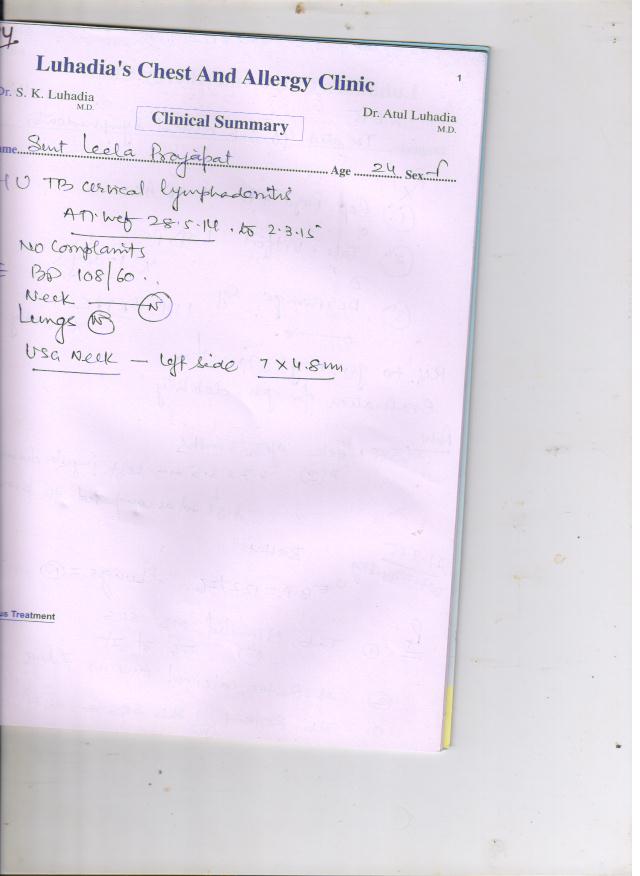 Luhadia's Chest And Allergy Clinic
1
Dr. S. K. Luhadia
M.D.
Dr. Atul Luhadia
M.D.
Clinical Summary
ame Smt Leela Prajapat Age 24 Sex f
TB cervical lymphadenitis
ATT wef 28.5.14 to 2.3.15
NO Complaints
BP 108/60
Neck N
Lungs N
USG Neck - left side 7 x 4.8 mm
us Treatment